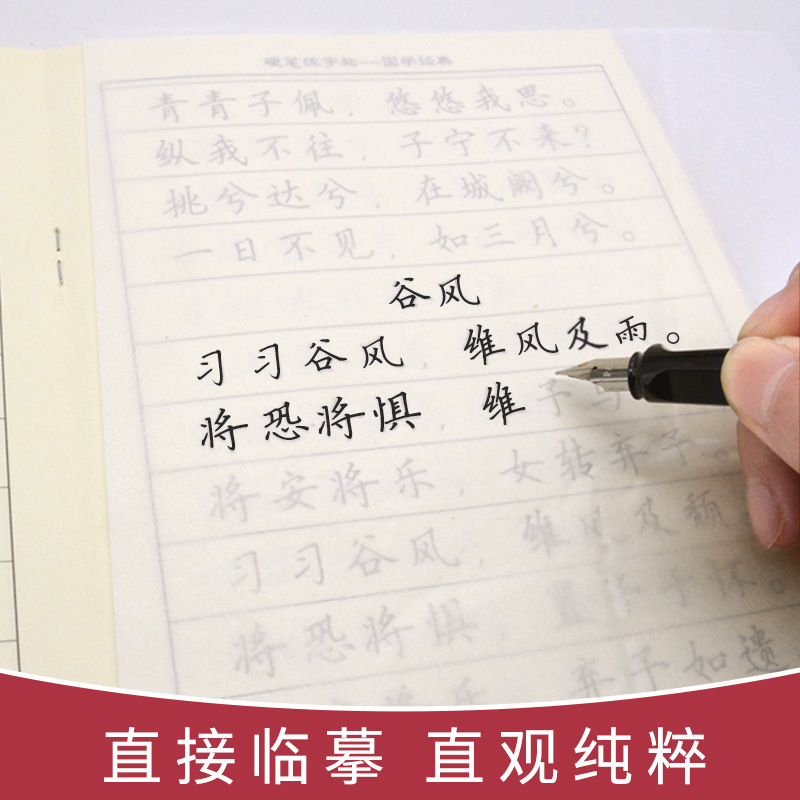 硬笔练字帖--国学经典
青青子佩，悠悠我思。
纵我不往，子宁不来？
挑兮达兮，在城阙兮。
一日不见，如三月兮。
谷风
习习谷风，维风及雨。
将恐将惧，维予与
将安将乐，女转弃予。
习习谷风，维风及颓
将恐将惧，置予于怀。
将安将乐，弃予如遗
直接临摹 直观纯粹